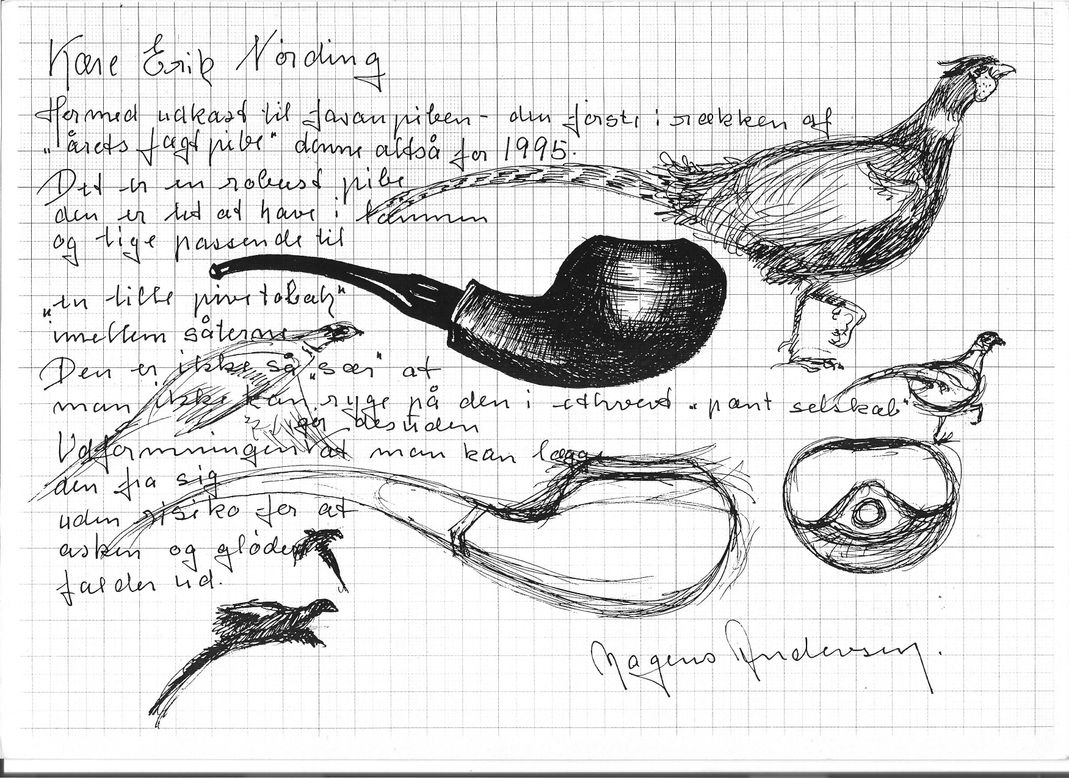 Kære Erik Nörding
Hermed udkast til fasanpiben - den første i rækken af
"årets jagtpibe" denne altså for 1995.
Det er en robust pibe
den er let at have i tanden
og lige passende til
"en lille pive tobak"
imellem såterne
Den er ikke så "sær" at
man ikke kan ryge på den i ethvert "pænt selskab"
gør desuden
Udformningen at man kan lægge
den fra sig
uden risiko for at
asken og gløder
falder ud.
Mogens Andersen.